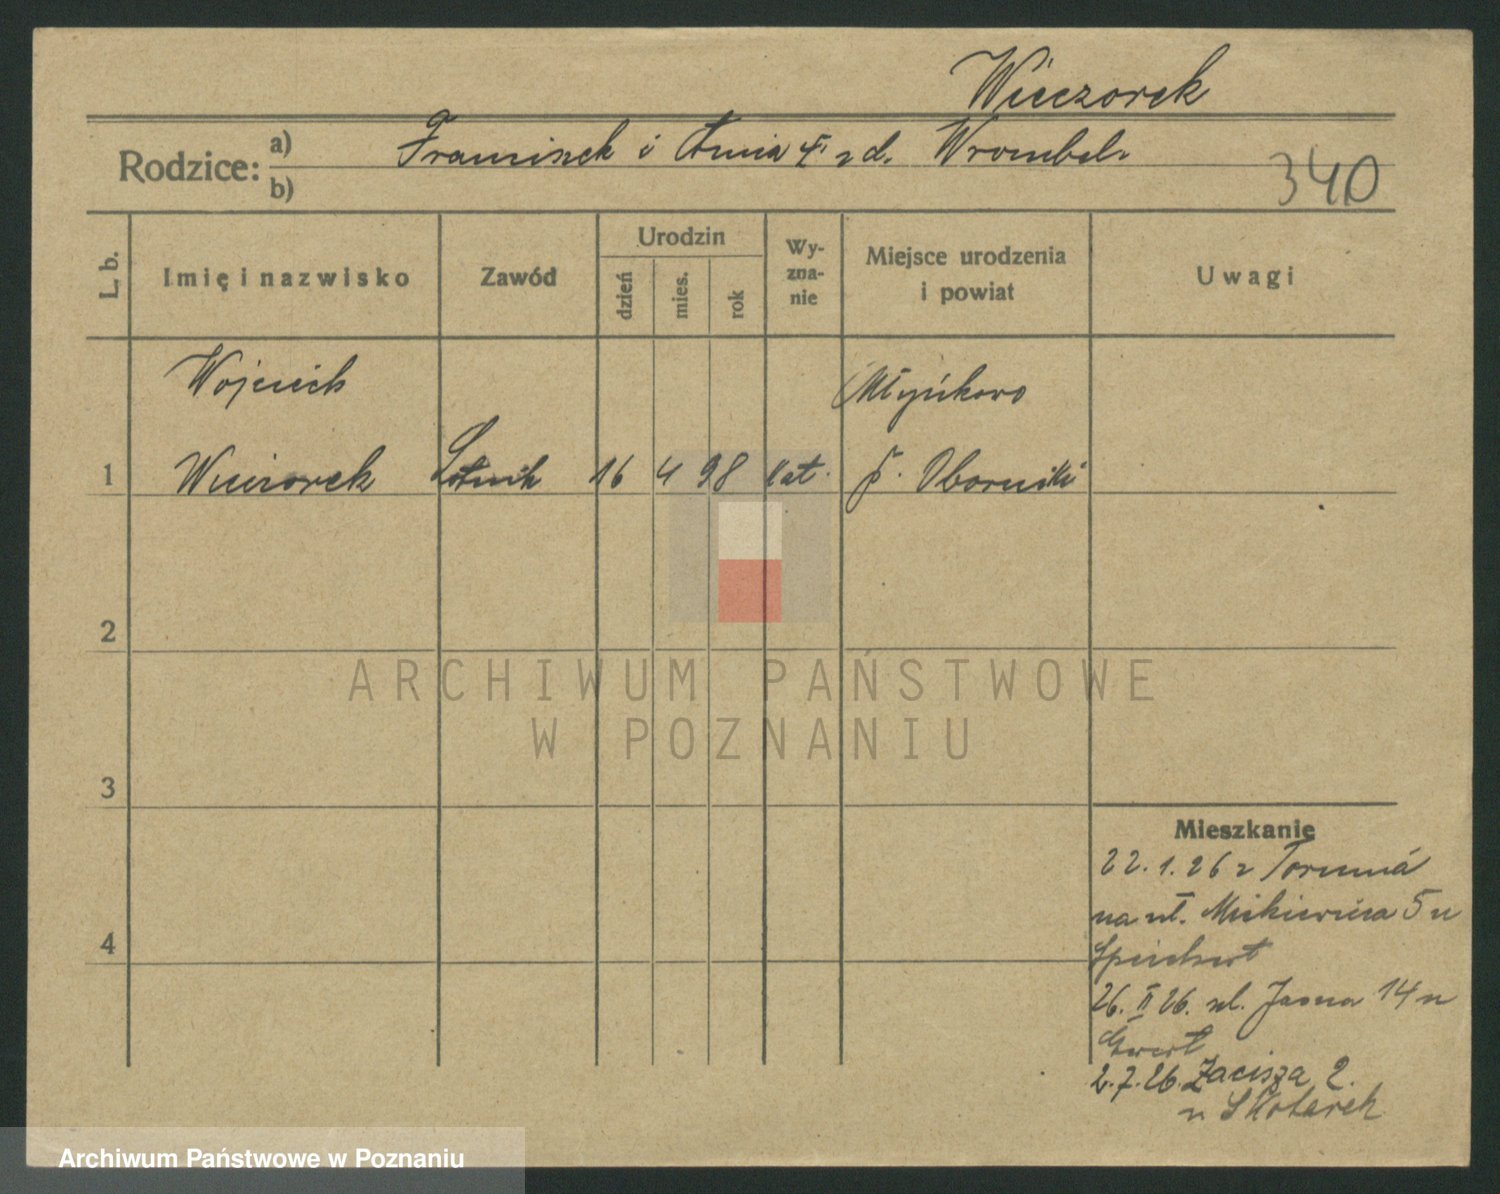 Wieczorek
Rodzice: a) Franciszek i Anna z d. Wrombel.
b)
340
L. b.
Imię i nazwisko
Zawód
Urodzin
dzień
mies.
rok
Wy-
zna-
nie
Miejsce urodzenia
i powiat
Uwagi
Wojciech
Młyńkowo
1 Wieczorek Lotnik 16 4 98 kat. p. Oborniki
2
ARCHIWUM PAŃSTWOWE
W POZNANIU
3
Mieszkanie
22.1.26 z Torunia
na ul. Mickiewicza 5 u
4
26. II 26. ul. Jasna 14 u
2.7.26. Zacisza 2.
u Skotarek
Archiwum Państwowe w Poznaniu